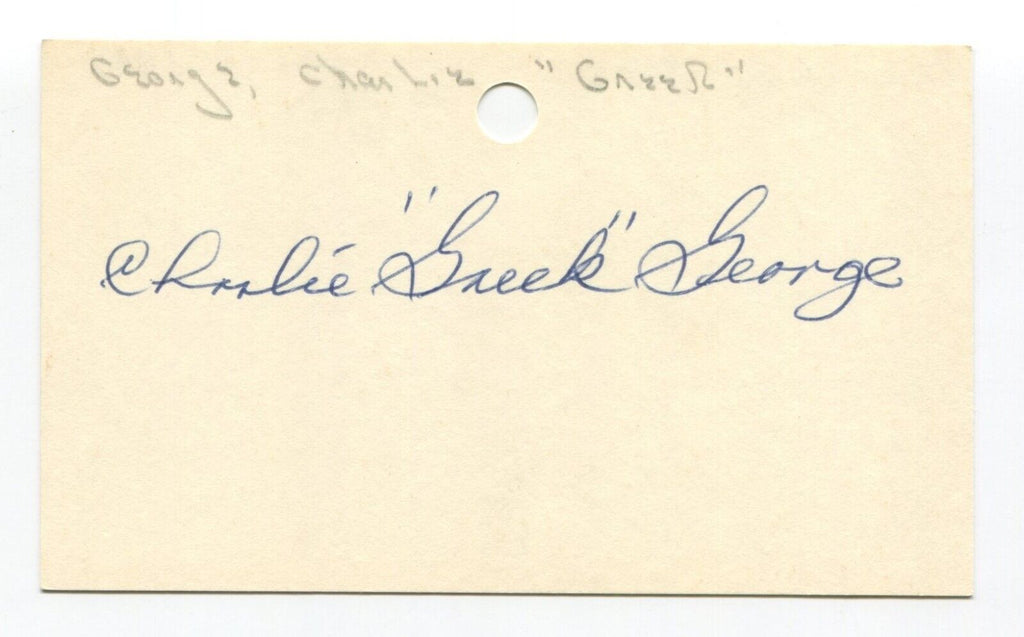 George, Charlie "Greek"
Charlie "Greek" George